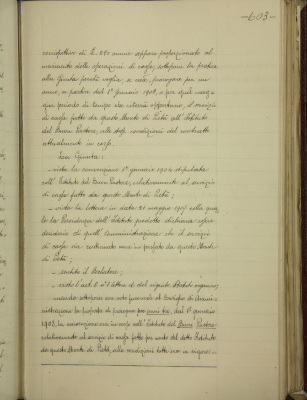 -603-
corrispettivo di L. 250 annue appare proporzionato al
movimento delle operazioni di cassa, sottopone la pratica
alla Giunta perché voglia, a sua, prorogare per un
anno, a partire dal 1° gennaio 1908, e per quel maggior
periodo di tempo che crederà opportuno, il servizio
di cassa fatto da questo Monte di Pietà all'Istituto
del Buon Pastore, alle stesse condizioni del contratto
attualmente in corso.
La Giunta:
- vista la convenzione 1° gennaio 1904 stipulata
coll'Istituto del Buon Pastore, relativamente al servizio
di cassa fatto da questo Monte di Pietà;
- vista la lettera in data 20 maggio 1907 colla quale
la Presidenza dell'Istituto predetto dichiara essere
desiderio di quell'Amministrazione che il servizio
di cassa sia continuato da questo Monte
di Pietà;
- sentito il Relatore;
- visto l'art. 8 n° 1 lettera d del vigente Statuto organico;
manda sottoporre con voto favorevole al Consiglio di Amministrazione
la proposta di prorogare per anni tre, dal 1° gennaio
1908, la convenzione ora in corso coll'Istituto del Buon Pastore
relativamente al servizio di cassa fatto per conto del detto Istituto
da questo Monte di Pietà, alle condizioni tutte ora in vigore.-